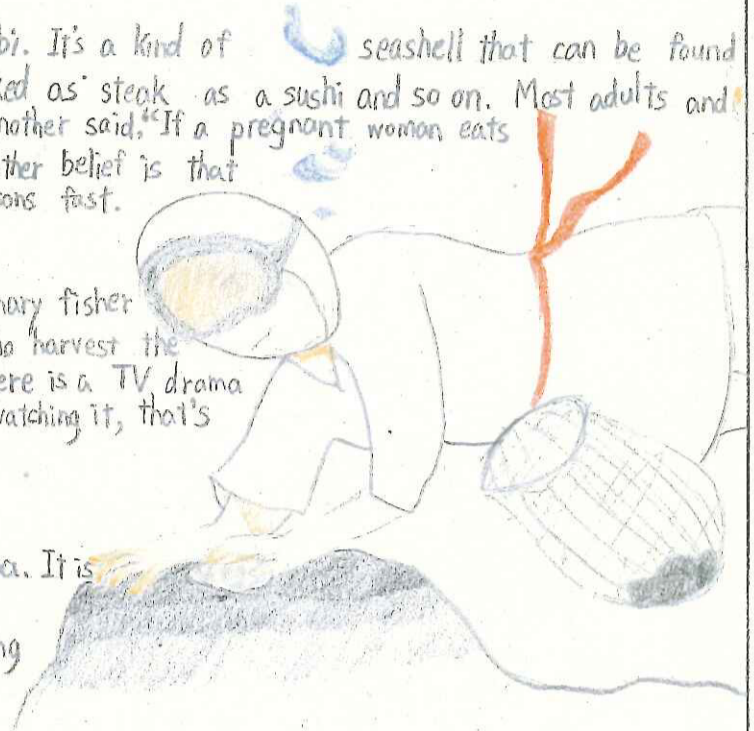 bi. It's a kind of seashell that can be found
ked as steak as a sushi and so on. Most adults and
nother said, "If a pregnant woman eats
ther belief is that
ons fast.
nary fisher
o harvest the
ere is a TV drama
vatching it, that's
a. It is
ng